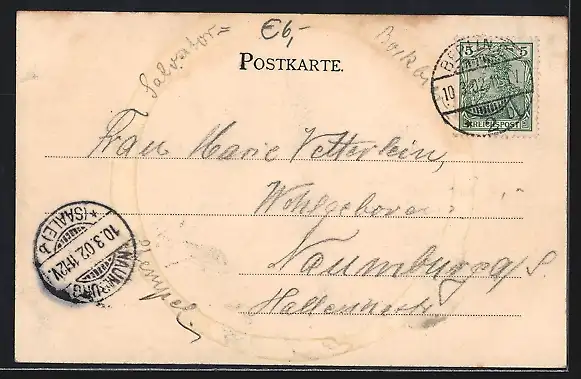 Salvator=
€6,-
Bockbi
POSTKARTE.
5 5
REICHSPOST
BERLIN
10.3.02
Frau Marie Vetterlein,
Wohlgeboren
Naumburg a/S.
Stempel.
NAUMBURG
(SAALE) B
10.3.02 11-12V.